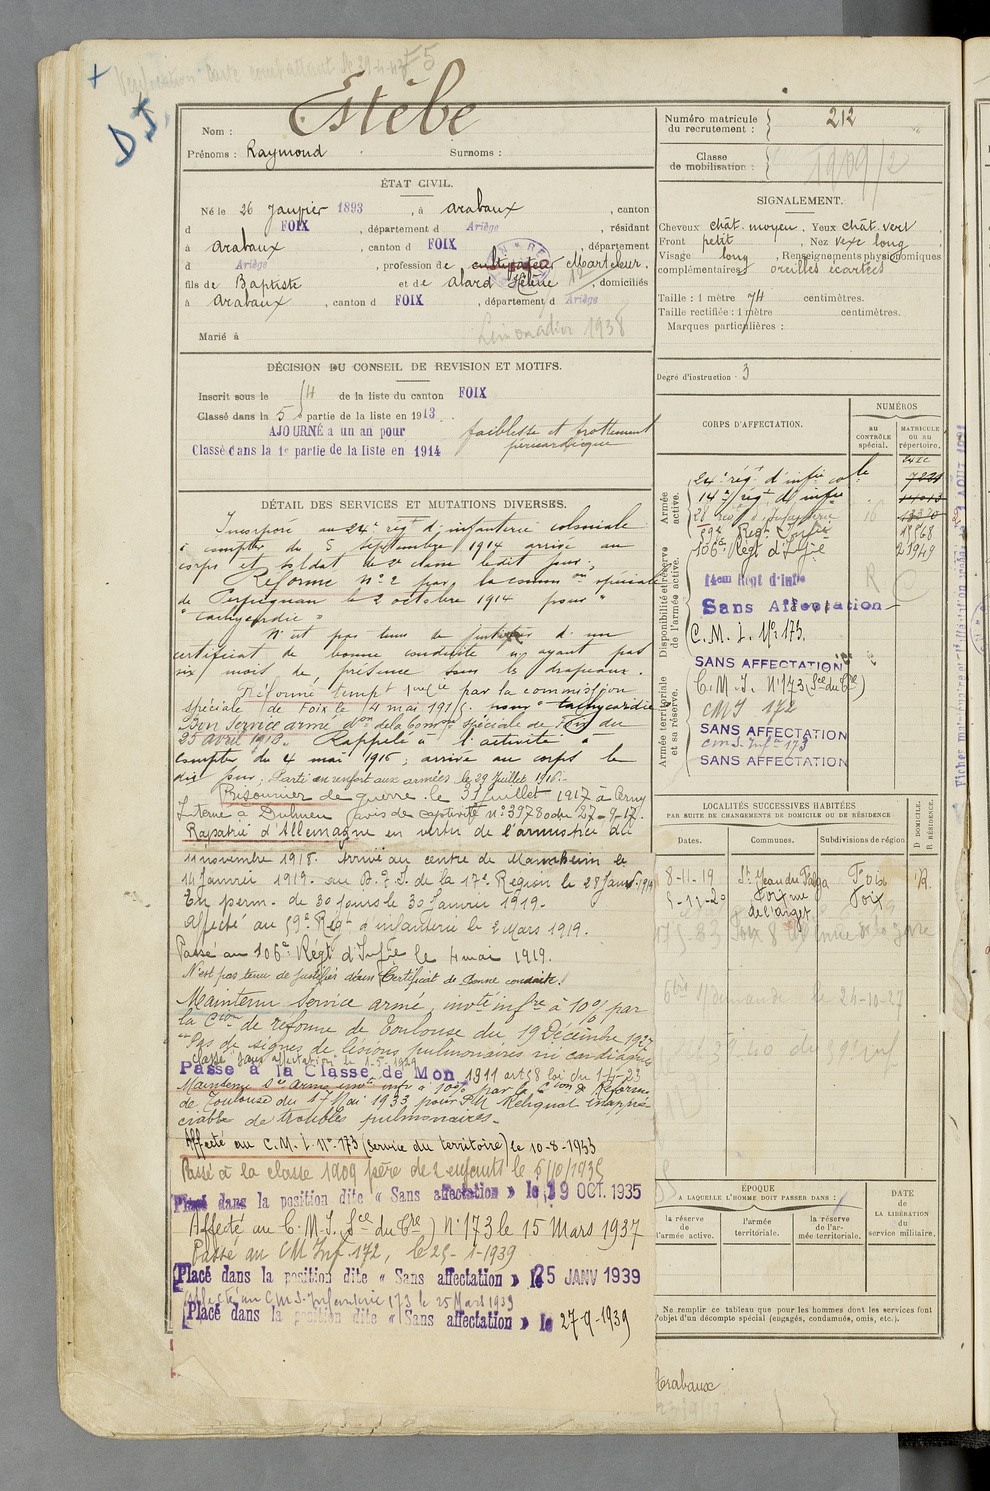 Vérification Carte combattant le 29-4-43
Nom : Estèbe
Prénoms : Raymond Surnoms :
Numéro matricule du recrutement : 212
Classe de mobilisation : 1909/2
ÉTAT CIVIL.
Né le 26 Janvier 1893, à Arabaux, canton
d FOIX, département d Ariège, résidant
à Arabaux, canton d FOIX, département
d Ariège, profession de cultivateur Marteleur.
fils de Baptiste et de Alard Hélène, domiciliés
à Arabaux, canton d FOIX, département d Ariège
Limonadier 1938
Marié à
SIGNALEMENT.
Cheveux chât. moyen. Yeux chât. vert
Front petit Nez vexe long
Visage long, Renseignements physionomiques
complémentaires oreilles écartées
Taille : 1 mètre 74 centimètres.
Taille rectifiée : 1 mètre centimètres.
Marques particulières :
Degré d'instruction : 3
DÉCISION DU CONSEIL DE REVISION ET MOTIFS.
Inscrit sous le n° 4 de la liste du canton FOIX
Classé dans la 5 partie de la liste en 1913.
AJOURNÉ à un an pour faiblesse et frottement
péricardique
Classé dans la 1e partie de la liste en 1914
DÉTAIL DES SERVICES ET MUTATIONS DIVERSES.
Incorporé au 24e régt d'infanterie coloniale
à compter du 5 septembre 1914 arrivé au
corps et soldat de 2e classe ledit jour.
Réformé N° 2 par la common spéciale
de Perpignan le 2 octobre 1914 pour "
"tachycardie"
N'est pas tenu de justifier d'un
certificat de bonne conduite n'ayant pas
six mois de présence sous les drapeaux.
Réformé tempt par la commission
spéciale de Foix le 4 mai 1915. pour "tachycardie"
Bon service armé don de la Comon spéciale de Foix du
25 avril 1916. Rappelé à l'activité à
compter du 4 mai 1916, arrivé au corps le
dit jour. Parti en renfort aux armées le 29 Juillet 1916.
Prisonnier de guerre le 31 juillet 1917 à Cerny
Interné à Dulmen (avis de captivité n° 39780 du 27-9-17.
Rapatrié d'Allemagne en vertu de l'armistice du
11 novembre 1918. Arrivé au centre de Mannheim le
14 Janvier 1919. au D.I. de la 17e Région le 28 Janv. 1919
En perm. de 30 jours le 30 Janvier 1919.
Affecté au 59e Régt d'infanterie le 2 Mars 1919.
Passé au 106e Régt d'Infrie le 4 mai 1919.
N'est pas tenu de justifier d'un Certificat de Bonne conduite.
Maintenu service armé, invté infre à 10% par
la Cion de réforme de Toulouse du 19 Décembre 1927
"Pas de signes de lésions pulmonaires ni cardiaques
Classé "sans affectation" le 1-5-1929
Passé à la Classe de Mon 1911 art 58 loi du 1-4-23
Maintenu sce armé invté infre à 10% par la Cion de Réforme
de Toulouse du 17 Mai 1933 pour Reliquat inappré-
ciable de troubles pulmonaires.
Affecté au C.M.I. N° 173 (Service du territoire) le 10-8-1933
Passé à la classe 1909 père de 2 enfants le 6/10/1935
Placé dans la position dite « Sans affectation » le 19 OCT. 1935
Affecté au C.M.I. (Sce du Cre) N° 173 le 15 Mars 1937
Passé au CM Inf. 172, le 25-1-1939
Placé dans la position dite « Sans affectation » le 25 JANV 1939
Affecté au C.M.I. Infanterie 173 le 25 Mars 1939
Placé dans la position dite « Sans affectation » le 27-9-1939
CORPS D'AFFECTATION.
NUMÉROS
AU CONTRÔLE spécial.
MATRICULE OU AU répertoire.
Armée active.
Disponibilité et réserve de l'armée active.
Armée territoriale et sa réserve.
24e régt d'infie cole
14e régt d'infie
59e Régt Infie
106e Régt d'Infie
14em Régt d'Infie
Sans Affectation
C.M.I. N° 173.
SANS AFFECTATION
C.M.I. N° 173 (Sce du Cre)
CMI 172
SANS AFFECTATION
CM I. Infie 173
SANS AFFECTATION
LOCALITÉS SUCCESSIVES HABITÉES
PAR SUITE DE CHANGEMENTS DE DOMICILE OU DE RÉSIDENCE
Dates. Communes. Subdivisions de région
D DOMICILE. R RÉSIDENCE.
8-11-19 St Jean du Falga Foix R.
Foix rue Foix
de l'arget
ÉPOQUE
A LAQUELLE L'HOMME DOIT PASSER DANS :
la réserve de l'armée active.
l'armée territoriale.
la réserve de l'armée territoriale.
DATE de LA LIBÉRATION du service militaire.
Ne remplir ce tableau que pour les hommes dont les services font
l'objet d'un décompte spécial (engagés, condamnés, omis, etc.).
Arabaux